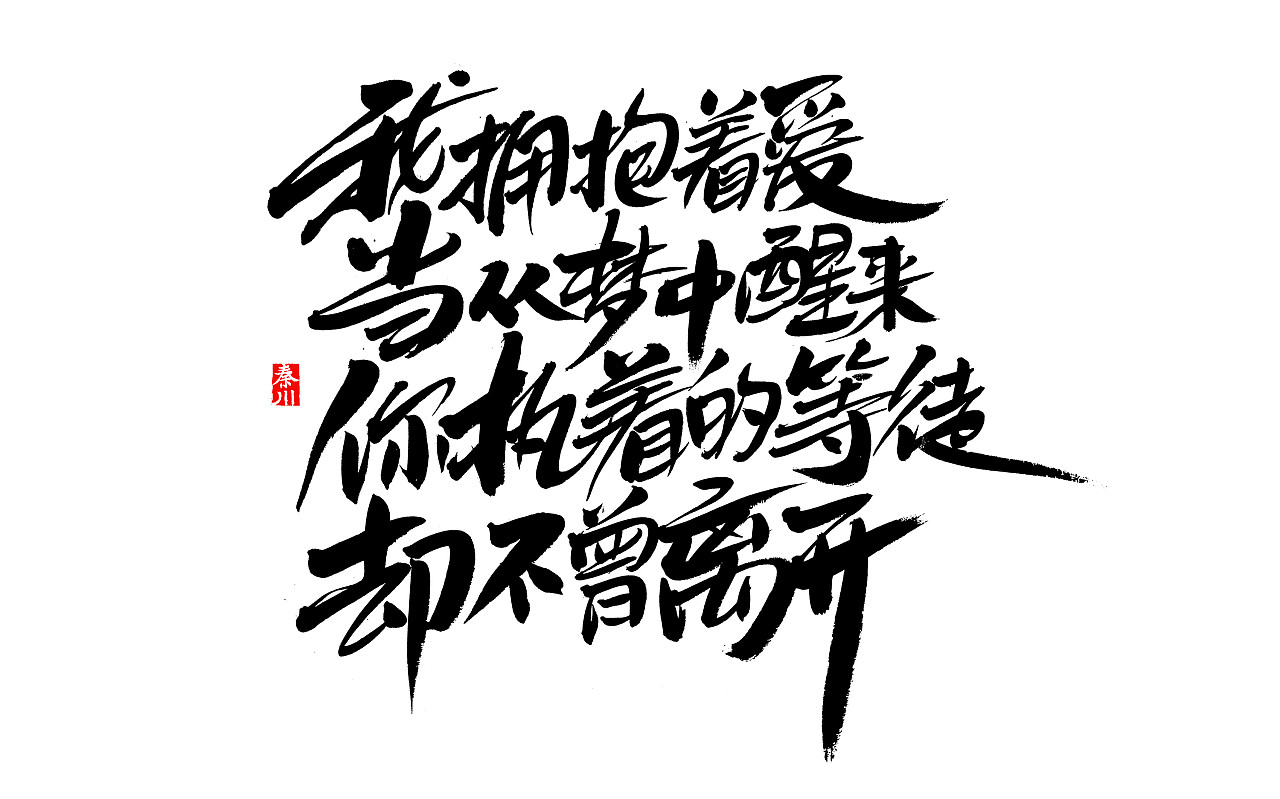 我拥抱着爱
当从梦中醒来
你执着的等待
却不曾离开
秦川